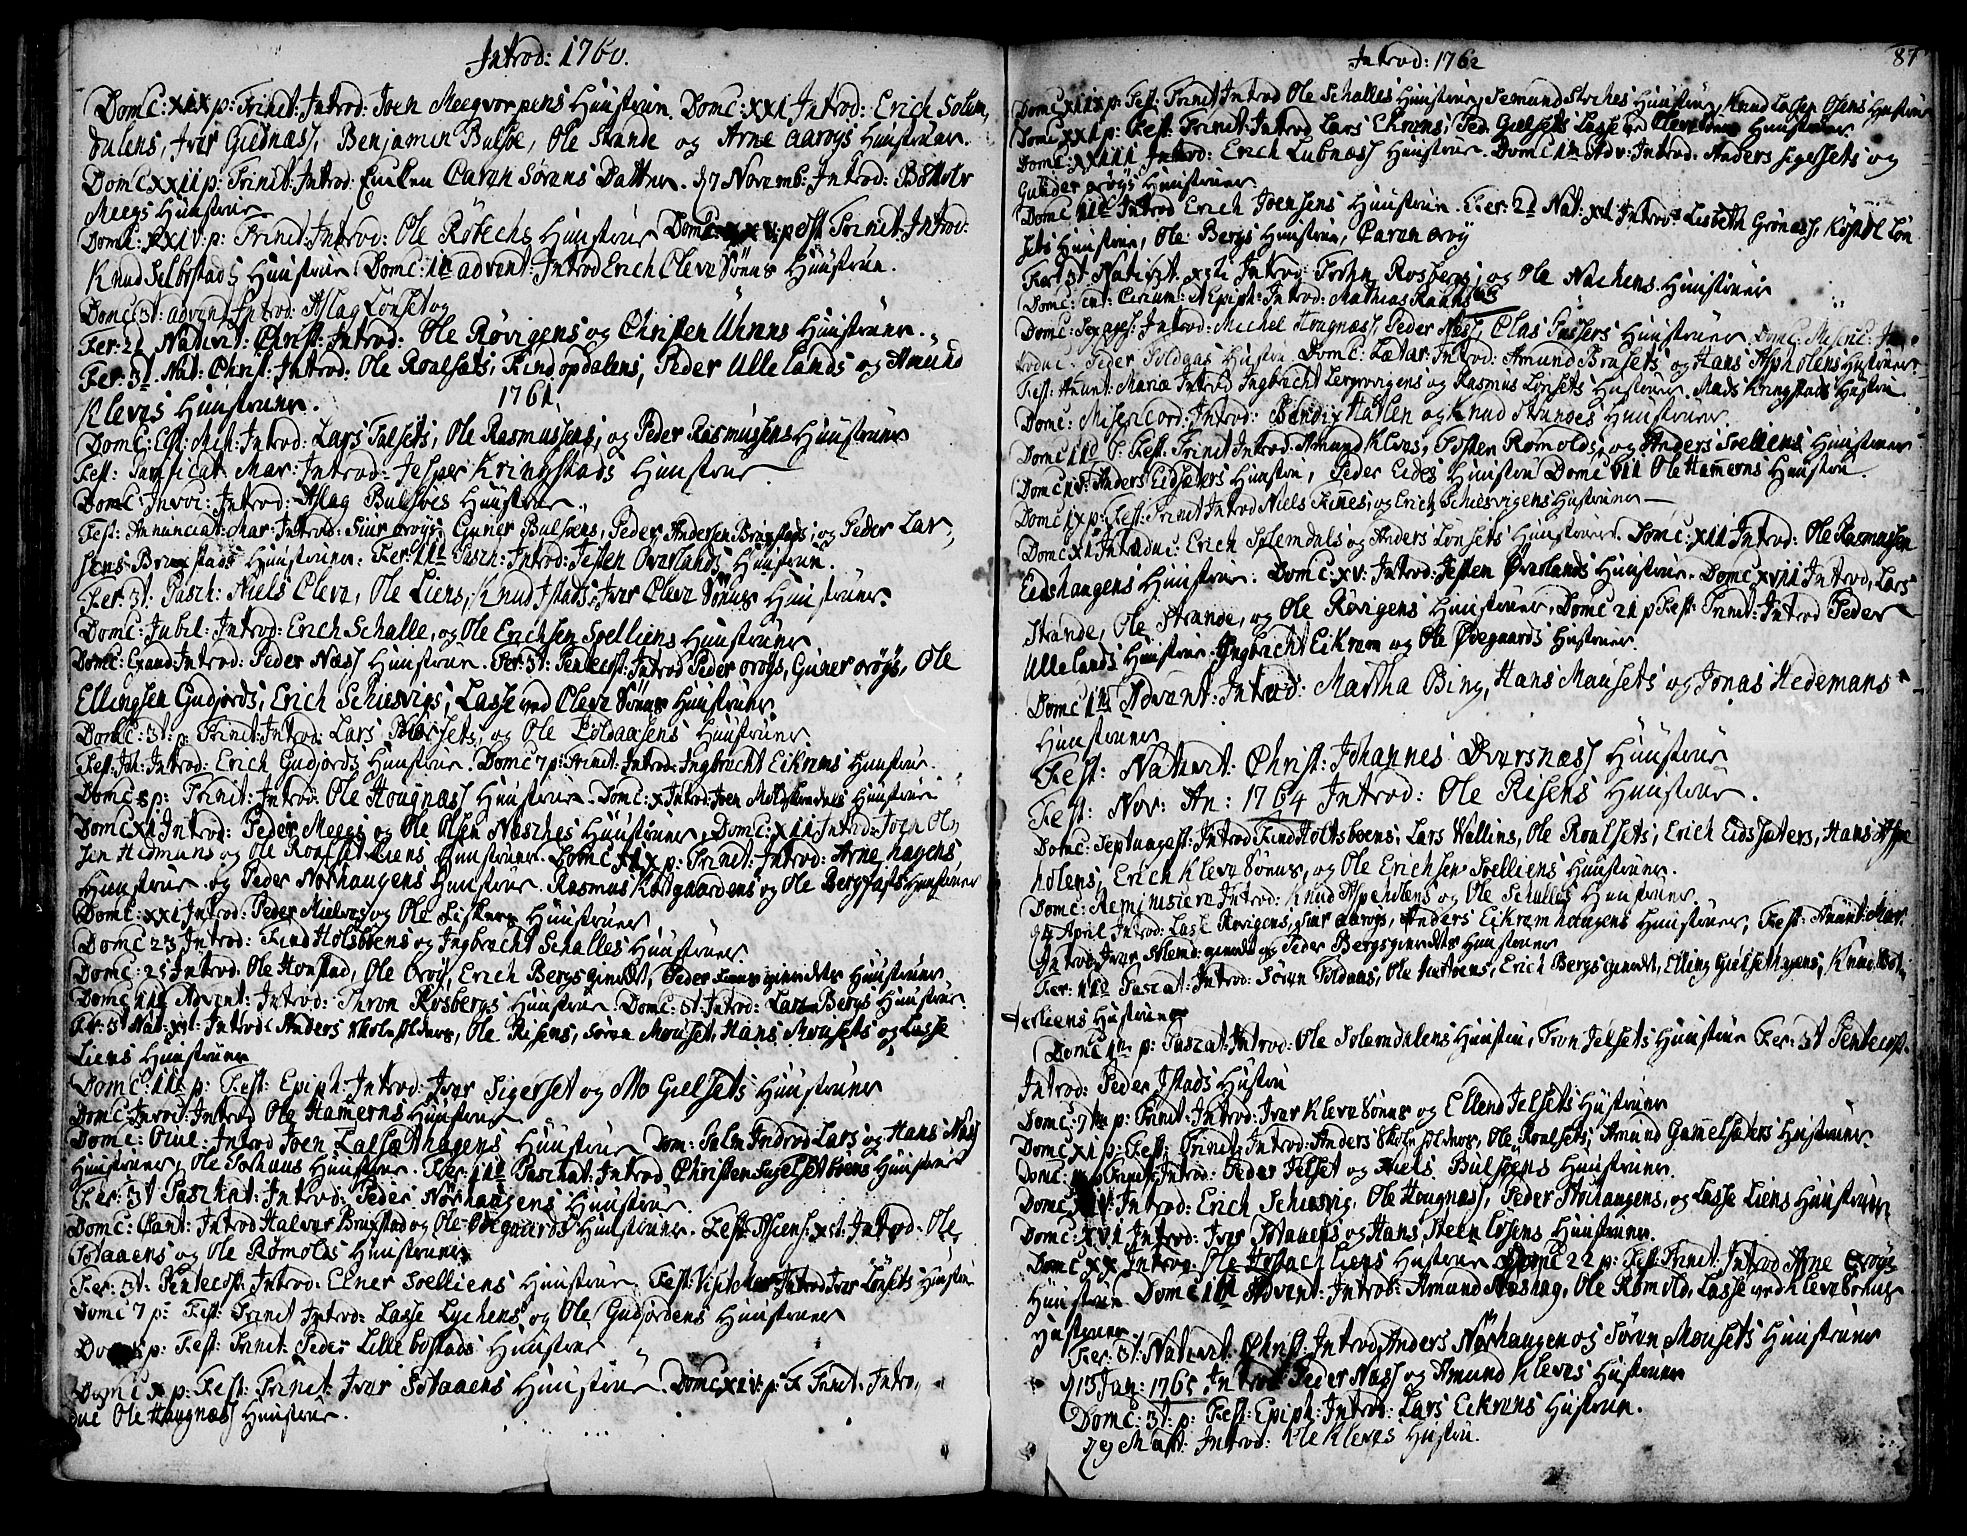 Introd: 1760.
Domc: xix p: Trinit: Introd: Joen Meegvorpens Huustrue. Domc: xxi Introd: Erich Solem,
dalens, Iver Giednæss, Benjamin Bulsøe, Ole Strande og Arne Aarøys Huustruer.
Domc xxii p: Trinit: Introd: Encken Caren Sørens Datter. d 7 Novemb: Introd:
Meegs Huustrue
Domc: xxiv: p: Trinit: Introd: Ole Røtechs Huustrue Domc: xxv: post Trinit: Introd:
Knud Selbostads Huustrue Domc: 1te advent: Introd Erich Cleve Sønes Huustrue.
Domc: 3t: advent Introd: Aslag Lønset og
Fer: 2d Nativit: Christ: Introd: Ole Røvigens og Christen Uhrens Huustruer.
Fer: 3t. Nat: Christ: Introd: Ole Roalsets, Find opdalens, Peder Ullelands og Amund
Kleves Huustruer. 1761
Domc: Est: Mih: Introd: Lars Talsets, Ole Rasmussens, og Peder Rasmusens Huustruer
Fest: Purificat Mar: Introd: Jesper Kringstads Huustrue
Domc Invoc: Introd: Aslag Bulsøes Huustrue.
Fest: Annunciat: Mar Introd: Siur orøys, Guner Bulsøens, Peder Andersen Bruxstads, og Peder Lar,
sens Bruxstads Huustruer: Fer: 11te Pasch: Introd: Jesten Overlands Huustrue.
Fer: 3t: Pasch: Niels Cleve, Ole Liens, Knud Istads, Iver Cleve Sønes Huustruer.
Domc: Jubil: Introd: Erich Schalle, og Ole Erichsen Soelliens Huustruer
Domc: Exaud Introd: Peder Næss Huustrue. Fer: 3t: Pentecost: Introd Peder orøys, Guner orøys, Ole
Ellingsen Gudjords, Erich Schiesvigs, Lasse ved Cleve Sønes Huustruer
Domc: 3t: p: Trinit: Introd: Lars og Ole Huustruer
Fest: Joh: Introd: Erich Gudjords Huustrue. Domc 7 p: Trinit: Introd: Ingbricht Eikrems Huustrue.
Domc 8 p: Trinit: Introd: Ole Hougnæss Huustrue. Domc: x Introd: Joen Huustrue
Domc xi Introd: Peder Meegs og Ole Olsen Nasches Huustruer, Domc: xii Introd: Joen Ol,
sen Hedmans og Ole Roalset Liens Huustruer. Domc: xix p: Trinit: Introd: Arne hagens
Huustrue og Peder Nørhaugens Huustrue. Rasmus Kordgaardens og Ole Bergsets Huustruer
Domc: xxi Introd: Peder Mielves og Ole Huustruer
Domc 23 Introd: Find Holsboens og Ingbricht Schalles Huustruer.
Domc: 25 Introd. Ole Honstad, Ole Orøy, Erich Bergs generelt, Peder Huustruer
Domc: 1te Advent: Introd: Thron Rosbergs Huustrue. Domc: 3t: Introd: Lars Bergs Huustrue.
Fer: 3t Nat: xsti: Introd: Anders Skoleholders, Ole Risens, Søren Mouset, Hans Mousets og Lasse
Liens Huustruer
Domc: 11te p: Fest: Epiph: Introd: Iver Sigerset og Mo Gielsets Huustruer
Domc: Invoc: Introd Ole Hamerns Huustrue
Domc: Ocul: Introd Joen Talsæthagens Huustrue Dom: Palm Introd Lars og Hans Næss
Huustruer, Ole Huustrue. Fer: 11te Paschat: Introd Christen Huustrue
Fer: 3t Paschat: Introd: Peder Nørhaugens Huustrue.
Domc: Cant: Introd Halvor Bruxstad og Ole Ødegaards Huustruer. Fest: Ascens: xsti: Introd: Ole
og Ole Rømolds Huustruer
Fer: 3t: Pentecost: Introd: Elner Soelliens Huustrue. Fest: Visit Mar Introd Iver Lønsets Huustrue
Domc 7 p: Fest: Trinit Introd: Lasse Lychens og Ole Gudjordens Huustruer
p: Fest: Trinit: Peder Lillebostads Huustrue
Domc x p: Fest: Trinit: Iver Huustrue. Domc xiv: p: F Trinit: Intro,
duc Ole Hougnæss Huustrue.
Introd: 1762
87
Domc xiix p: Fest: Trinit Introd Ole Schalles Huustrue, Semund Huustrue, Knud Olsens Huustrue
Domc xxi p: Fest: Trinit: Introd Lars Ekrens, Ped: Gielsets, Lasse ved Clevesønes Huustruer
Domc: xxiii Introd: Erich Lubnæss Huustrue. Domc 1te Adv: Introd: Anders Sigersets og
Gunder orøys Huustruer.
Domc 11te Introd Erich Joensens Huustrue. Fer: 2d Nat: xsti Introd: Lisbeth Grønæss,
sets Huustrue, Ole Bergs Huustrue, Caren orøy
Fer: 3t Nativit. xsti Introd: Trohn Rosbergs, og Ole Nachens Huustruer
Domc: int: Circum: & Epiph: Introd: Mathias Raans 63
Domc: Sexages: Introd: Michel Hougnæss, Peder Næss, Clas Huustruer Domc: Miseric: In,
troduc: Peder Huustrue Domc: Lætar: Introd: Amund Bruseths, og Hans Aspholens Huustruer
Fest: Anunt: Mariæ Introd Ingbricht Lergrovigens og Rasmus Lønsets Huustruer Mads Kringstads Huustrue
Domc: Misericord: Introd: Bendix Hatlen og Knud Strandes Huustruer
Domc 11te p: Fest: Trinit Introd: Amund Kleves, Tosten Rømolds, og Anders Soelliens Huustruer
Domc iv: Anders Eidsæters Huustrue, Peder Eides Huustrue Domc vii Ole Hamerns Huustrue
Domc ix p: Fest: Trinit Introd Niels Fines, og Erich Schiesvigens Huustruer
Domc xi Introduc: Erich Solemdals og Anders Lønsets Huustruer. Domc: xii Introd: Ole Rasmusen
Eidshaugens Huustrue. Domc: xv: Introd: Jesten Øverlands Huustrue. Domc: xvii Introd, Lars
Strande, Ole Strande, og Ole Røvigens Huustruer. Domc 21 p Fest: Trinit: Introd Peder
Ullelands Huustrue. Ingbricht Eikrem og Ole Ødegaards Huustruer.
Domc 1te Advent: Introd: Martha Bing, Hans Mausets og Jonas Hedemans
Huustruer
Fest: Nativit: Christ: Johannes Dversnæss Huustrue
Fest: Nov: An: 1764 Introd: Ole Risens Huustrue.
Domc: Septuagest: Introd Find Holtsboens, Lars Wallins, Ole Roalsets, Erich Eidssæters, Hans Aspe
holens, Erich Klevesønes, og Ole Erichsen Soelliens Huustruer.
Domc: Reminiscere Introd: Knud Aspeholens og Ole Schalles Huustruer.
d 4 April Introd: Lasse Røvigens, Iver Aarøys, Anders Eikremhaugens Huustruer, Fest: Anunt: Mar.
Introd: Iver Solemd: generelt og Peder Bergs generelts Huustruer
Fer: 11te Pascat: Introd: Søren Ole Erich Bergs generelt, Elling Gielsethagens, Knud
Huustruer
Domc 1te p: Pascat: Introd: Ole Solemdalens Huustrue, Tron Jelsets Huustrue Fer: 3t Pentecost.
Introd: Peder Istads Hustru
Domc: 7te p: Trinit: Introd: Iver Klevesønes og Ellend Jelsets Huustruer
Domc xi p: Fest: Trinit: Introd: Anders Skoleholders, Ole Roalsets, Amund Gamelsæters Huustruer
Domc: p Trinit: Introd: Peder Jelset og Niels Bulsøens Huustruer.
Domc: xv: Introd: Erich Schiesvig, Ole Hougnæss, Peder og Lasse Liens Huustruer
Domc: xvi Introd: Iver og Hans Steen Olsens Huustruer.
Domc xx Introd: Ole Huustrue Domc 22 p: Fest: Trinit: Introd Arne Orøys
Huustrue Domc 1te Advent: Introd: Amund Aashag, Ole Rømold, Lasse ved Klevesønes
Huustruer.
Fer: 3t: Nativit: Christ: Introd, Anders Nørhaugen og Søren Mousets Huustruer
d 13 Jan: 1765 Introd: Peder Næss og Amund Kleves Huustruer
Domc: 3t: p: Fest: Epiph: Introd: Lars Eikrens Huustrue.
Introd: Ole Kleves Hustru.